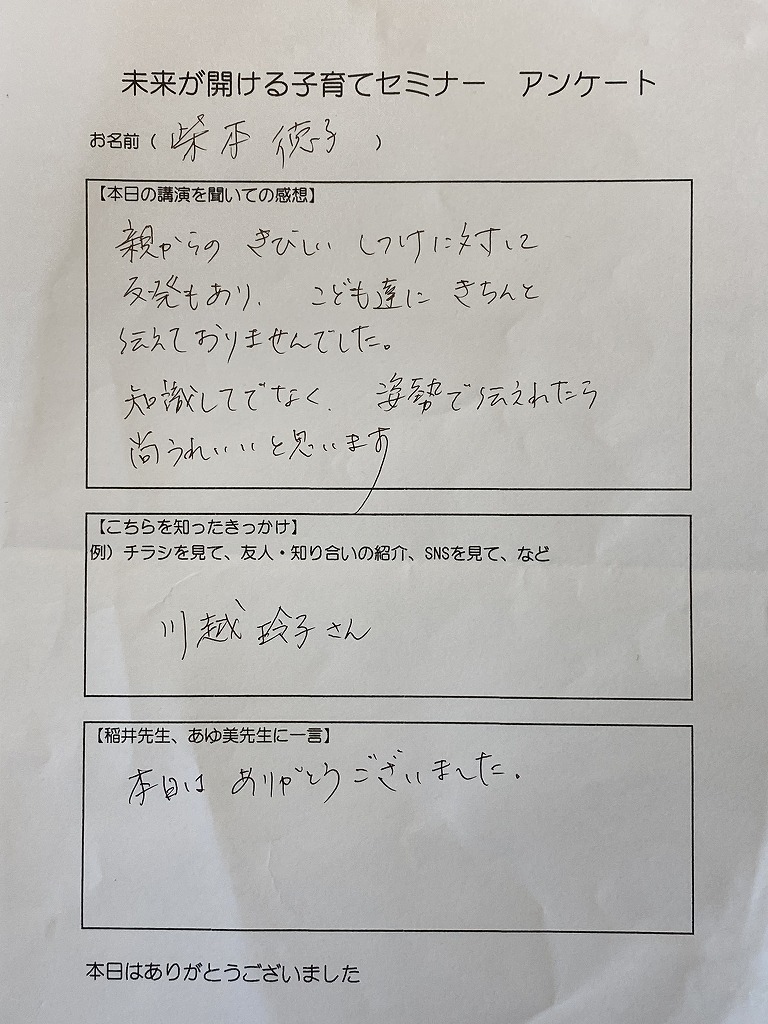 未来が開ける子育てセミナー　アンケート
お名前（ 柴本 徳子 ）
【本日の講演を聞いての感想】
親からの きびしい しつけに対して
反発もあり、 こども達に きちんと
伝えておりませんでした。
知識してでなく、 姿勢で伝えれたら
尚うれいいと思います
【こちらを知ったきっかけ】
例）チラシを見て、友人・知り合いの紹介、SNSを見て、など
川越 玲子さん
【稲井先生、あゆ美先生に一言】
本日は ありがとうございました。
本日はありがとうございました